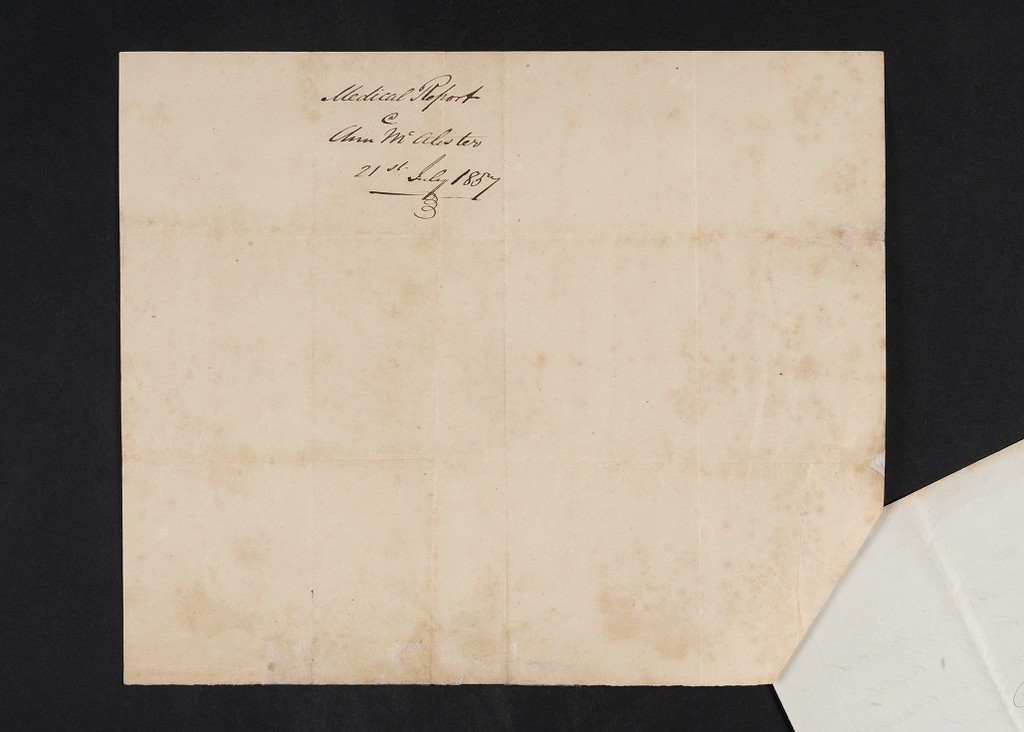 Medical Report
C
Ann McAlister
21st July 1857